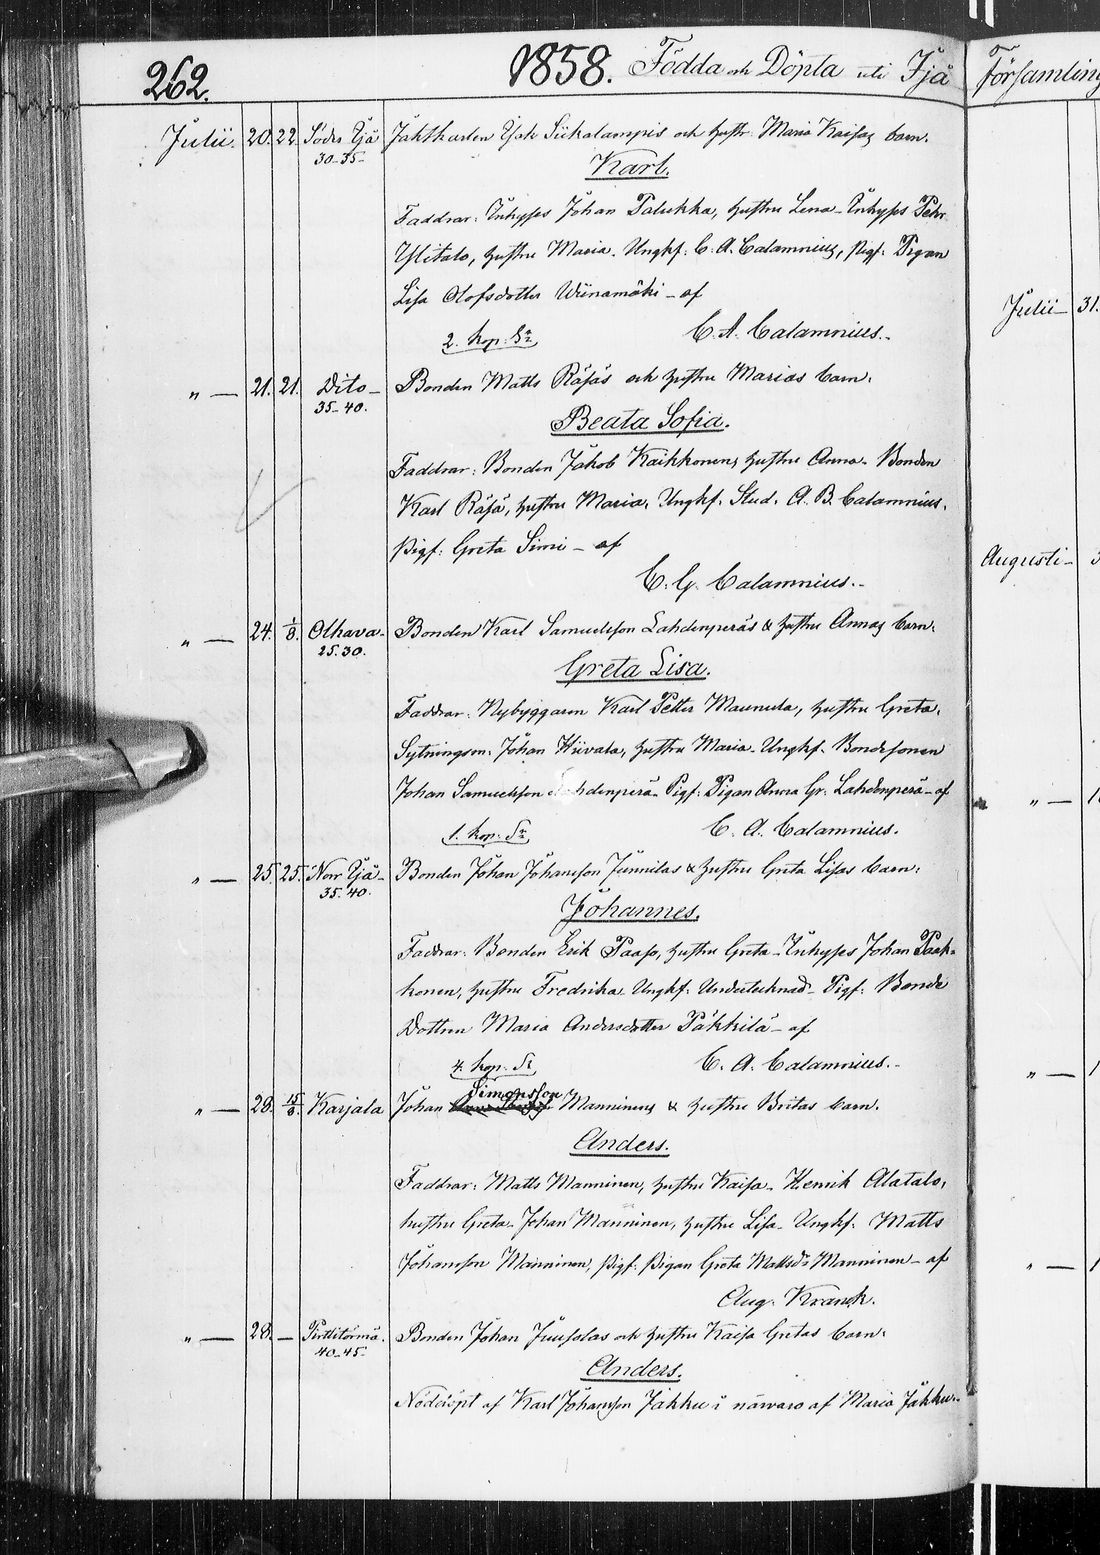 262.
1858. Födda och Döpta uti Ijå Församling
Julii. 20. 22. Söder Ijå Jakt Sükalampis och hustr. Maria Kaisas barn.
30-35-
Karl.
Faddrar: Inhyses Johan Palukka, hustru Lena - Inhyses Petr
Ylitalo, hustru Maria. Ungkf. C. A. Calamnius, pigf: Pigan
Lisa Olofsdotter Wiinamäki - af
2. kop. Sr C. A. Calamnius.-
" — 21. 21. Dito- Bonden Matts Räsäs och hustru Marias barn.
35-40.
Beata Sofia.
Faddrar: Bonden Jakob Kaikkonen, hustru Anna - Bonden
Karl Räsä, hustru Maria, Ungkf. Stud. A. B. Calamnius.
pigf: Greta Simi - af
C. G. Calamnius.-
" — 24. 1/8. Olhava- Bonden Karl Samuelsson Lahdenperäs & hustru Annas barn.
25.30.
Greta Lisa.
Faddrar: Nybyggaren Karl Petter Maunula, hustru Greta.
Sytningsm: Johan Hiivala, hustru Maria - Ungkf. Bondesonen
Johan Samuelsson Lahdenperä - Pigf: Pigan Anna Gr: Lahdenperä - af
1. kop. Sr C. A. Calamnius.
" — 25. 25. Norr Ijå- Bonden Johan Johansson Junnilas & hustru Greta Lisas barn.
35.40.
Johannes.
Faddrar: Bonden Erik Paaso, hustru Greta - Inhyses Johan Paak-
konen, hustru Fredrika - Ungkf: Undertecknad - Pigf: Bonde
Dottren Maria Andersdotter Päkkilä - af
4. kop. Sr C. A. Calamnius.-
Simonsson
" — 28. 15/8. Karjala Johan Manninens & hustru Britas barn.
Anders.
Faddrar: Matts Manninen, hustru Kaisa - Henrik Alatalo,
hustru Greta - Johan Manninen, hustru Lisa - Ungkf. Matts
Johansson Manninen, pigf: pigan Greta Mattsdr Manninen - af
Aug. Kranck.
" — 28. — Pirttitörmä. Bonden Johan Juusolas och hustru Kaisa Gretas barn.
40-45-
Anders.
Nöddöpt af Karl Johansson Jakku i närvaro af Maria Jakku.-
Julii- 31.
Augusti-
" —
" —
" —